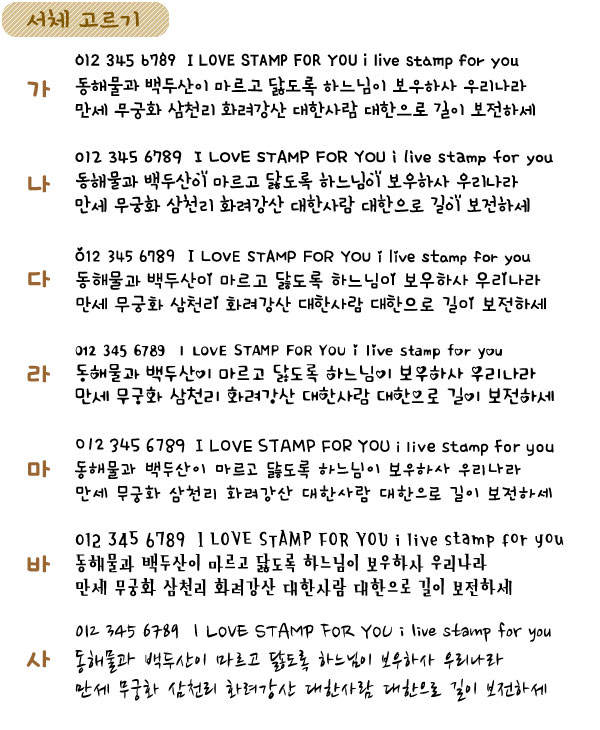 서체 고르기
012 345 6789 I LOVE STAMP FOR YOU i live stamp for you
가 동해물과 백두산이 마르고 닳도록 하느님이 보우하사 우리나라
만세 무궁화 삼천리 화려강산 대한사람 대한으로 길이 보전하세
012 345 6789 I LOVE STAMP FOR YOU i live stamp for you
나 동해물과 백두산이 마르고 닳도록 하느님이 보우하사 우리나라
만세 무궁화 삼천리 화려강산 대한사람 대한으로 길이 보전하세
012 345 6789 I LOVE STAMP FOR YOU i live stamp for you
다 동해물과 백두산이 마르고 닳도록 하느님이 보우하사 우리나라
만세 무궁화 삼천리 화려강산 대한사람 대한으로 길이 보전하세
012 345 6789 I LOVE STAMP FOR YOU i live stamp for you
라 동해물과 백두산이 마르고 닳도록 하느님이 보우하사 우리나라
만세 무궁화 삼천리 화려강산 대한사람 대한으로 길이 보전하세
012 345 6789 I LOVE STAMP FOR YOU i live stamp for you
마 동해물과 백두산이 마르고 닳도록 하느님이 보우하사 우리나라
만세 무궁화 삼천리 화려강산 대한사람 대한으로 길이 보전하세
012 345 6789 I LOVE STAMP FOR YOU i live stamp for you
바 동해물과 백두산이 마르고 닳도록 하느님이 보우하사 우리나라
만세 무궁화 삼천리 화려강산 대한사람 대한으로 길이 보전하세
012 345 6789 I LOVE STAMP FOR YOU i live stamp for you
사 동해물과 백두산이 마르고 닳도록 하느님이 보우하사 우리나라
만세 무궁화 삼천리 화려강산 대한사람 대한으로 길이 보전하세